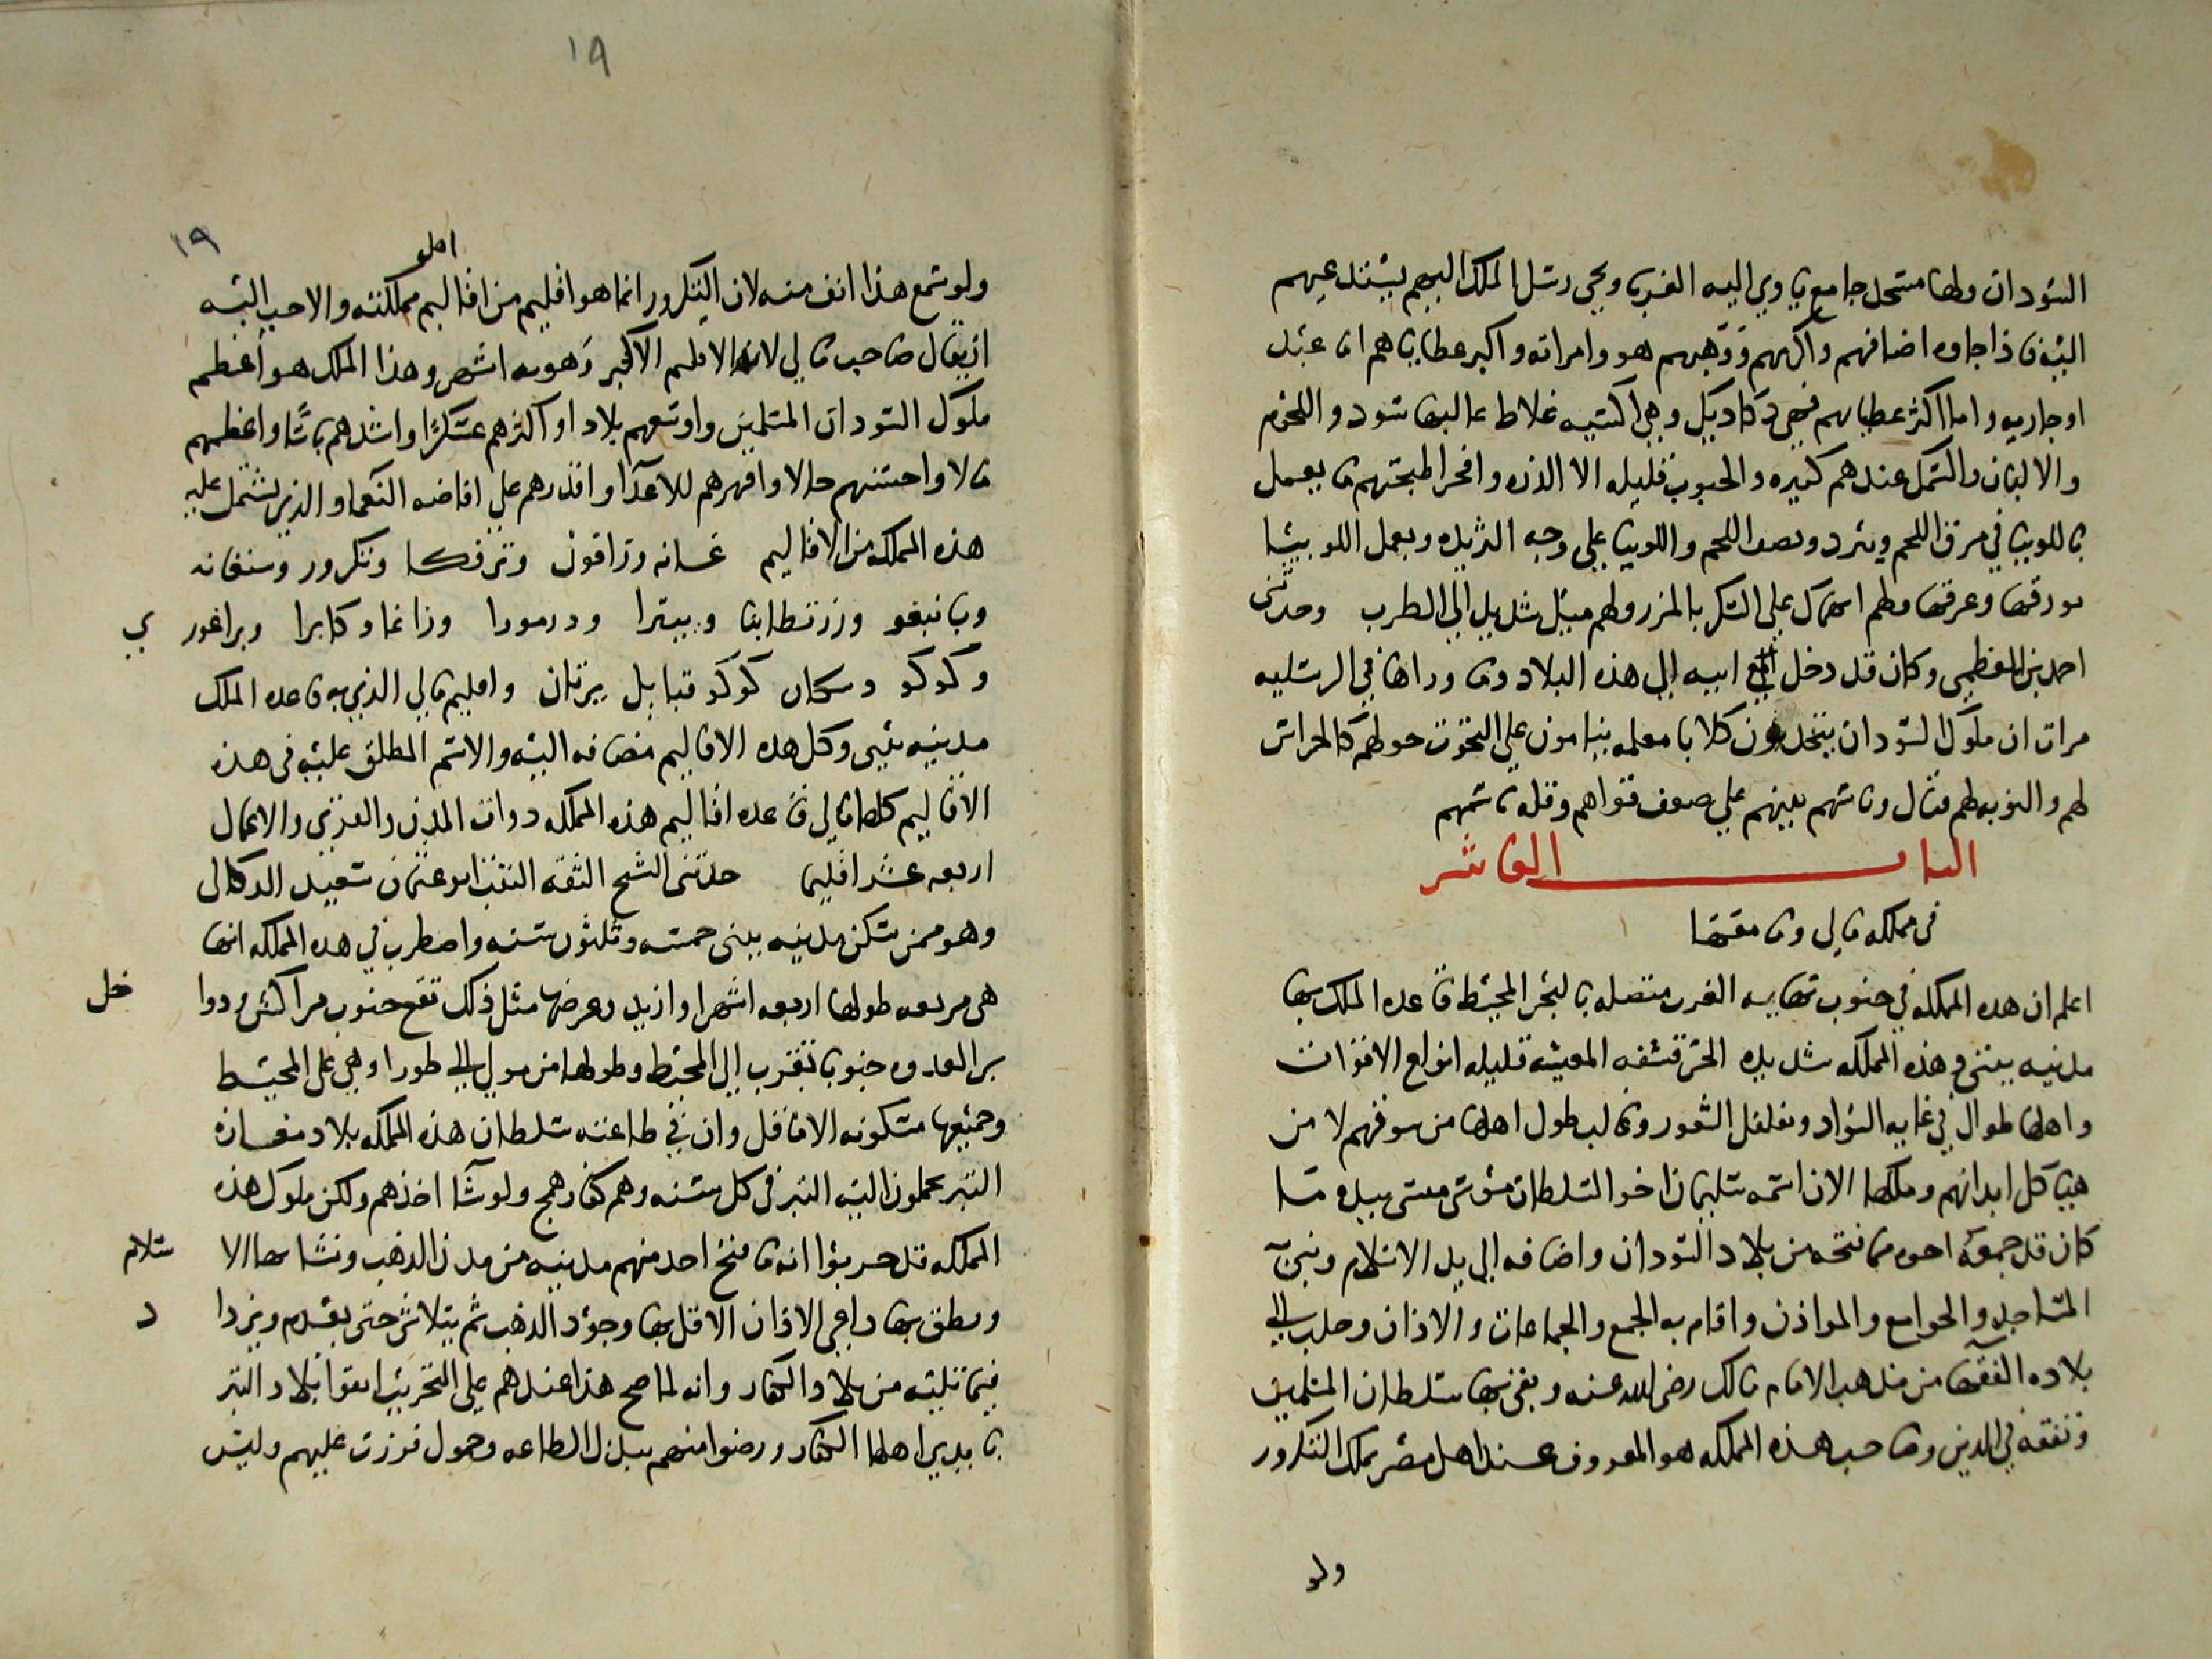 السودان ولها مسجد جامع ياوي اليه الغربا ويجي رسل الملك اليهم يستدعيهم
اليه فاذا جاوه اضافهم واكرمهم ووهبهم هو وامراته واكبر عطاياهم اما عبد
او جاريه واما اكثر عطياتهم فهي دكاديك وهي اكسيه غلاظ غالبها سود واللحوم
والالبان والسمك عندهم كثيره والحبوب قليله الا الذره وافخر اطبختهم ما يعمل
باللوبيا في مرق اللحم ويثرد ويصف اللحم واللوبيا على وجه الثريده ويعمل اللوبيا
بورقها وعرقها ولهم انهماك على السكر بالمزر ولهم ميل شديد الى الطرب وحدثني
احمد بن المعظمي وكان قد دخل مع ابيه الى هذه البلاد وما وراها في الرسليه
مرات ان ملوك السودان يتخذون كلابا معلمه ينامون على التخوت حولهم كالحراس
لهم والنوبه لهم قتال وباسهم بينهم على ضعف قواهم وقله باسهم
الباب العاشر
في مملكه مالي وما معها
اعلم ان هذه المملكه في جنوب نهايه الغرب متصله بالبحر المحيط قاعده الملك بها
مدينه بيتي وهذه المملكه شديده الحر قشفه المعيشه قليله انواع الاقوات
واهلها طوال في غايه السواد وتفلفل الشعور وغالب طول اهلها من سوقهم لا من
هياكل ابدانهم وملكها الان اسمه سليمان اخو السلطان موسى منسى بيده ما
كان قد جمعه اخوه مما فتحه من بلاد السودان واضافه الى يد الاسلام وبنى به
المساجد والجوامع والمواذن واقام به الجمع والجماعات والاذان وجلب الى
بلاده الفقها من مذهب الامام مالك رضي الله عنه وبقي بها سلطان المسلمين
وتفقه في الدين وصاحب هذه المملكه هو المعروف عند اهل مصر بملك التكرور
ولو
١٩
١٩
ولو سمع هذا انف منه لان التكرور انما هو اقليم من اقاليم مملكته والاحب اليه
ان يقال صاحب مالي لانه الاقليم الاكبر وهو به اشهر وهذا الملك هو اعظم
ملوك السودان المسلمين واوسعهم بلادا واكثرهم عسكرا واشدهم باسا واعظمهم
مالا واحسنهم حالا واقهرهم للاعدا واقدرهم على افاضه النعما والذي يشتمل عليه
هذه المملكه من الاقاليم غانه وزافون وترنكا وتكرور وسنغانه
وبانبغو وزرنطابنا وبيترا ودرمورا وزاغا وكابرا وبراغوري
وكوكو وسكان كوكو قبايل يرتان واقليم مالي الذي به قاعده الملك
مدينه بيتي وكل هذه الاقاليم مضافه اليه والاسم المطلق عليه في هذه
الاقاليم كلها مالي قاعده اقاليم هذه المملكه ذوات المدن والقرى والاعمال
اربعه عشر اقليما حدثني الشيخ الثقه الثقت ابو عثمان سعيد الدكالي
وهو ممن سكن مدينه بيتي خمسه وثلثون سنه واضطرب في هذه المملكه انها
هي مربعه طولها اربعه اشهر او ازيد وعرضها مثل ذلك تقع جنوب مراكش ودواخل
بر العدوه جنوبا بغرب الى المحيط وطولها من مولي الى طورا وهي على المحيط
وجميعها مسكونه الا ما قل وان في طاعه سلطان هذه المملكه بلاد مغازه
التبر يحملون اليه التبر في كل سنه وهم كفار همج ولو شا اخذهم ولكن ملوك هذه
المملكه قد جربوا انه ما فتح احد منهم مدينه من مدن الذهب وفشا بها الاسلام
ونطق بها داعي الاذان الا قل بها وجود الذهب ثم يتلاشى حتى يعدم ويزداد
فيما تليه من بلاد الكفار وانه لما صح هذا عندهم على التجريب ابقوا بلاد التبر
بايدي اهلها الكفار ورضوا منهم ببذل الطاعه وحمول قررت عليهم وليس